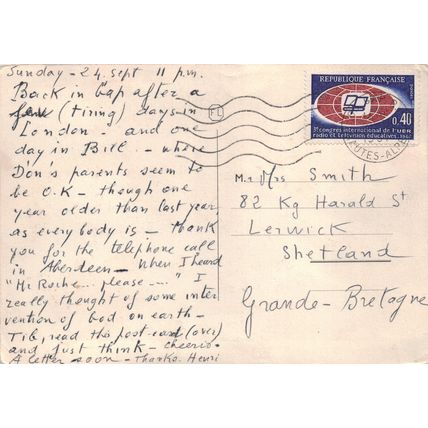 Sunday - 24. sept 11 p.m.
Back in Gap after a
few (tiring) days in
London - and one
day in Bill.. - where
Don's parents seem to
be O.K - though one
year older than last year
as every body is - thank
you for the telephone call
in Aberdeen - When I heard
"Mr Roche... please...." I
really thought of some inter
vention of God on earth -
Tib, read the post-card (over)
and just think - cheerio -
A letter soon - Thanks. Henri
FL
RÉPUBLIQUE FRANÇAISE
postes
0,40
3e congrès international de l'UER
radio et télévision éducatives. 1967
HAUTES-ALPES
Mr & Mrs Smith
82 Kg Harald St
Lerwick
Shetland
Grande-Bretagne